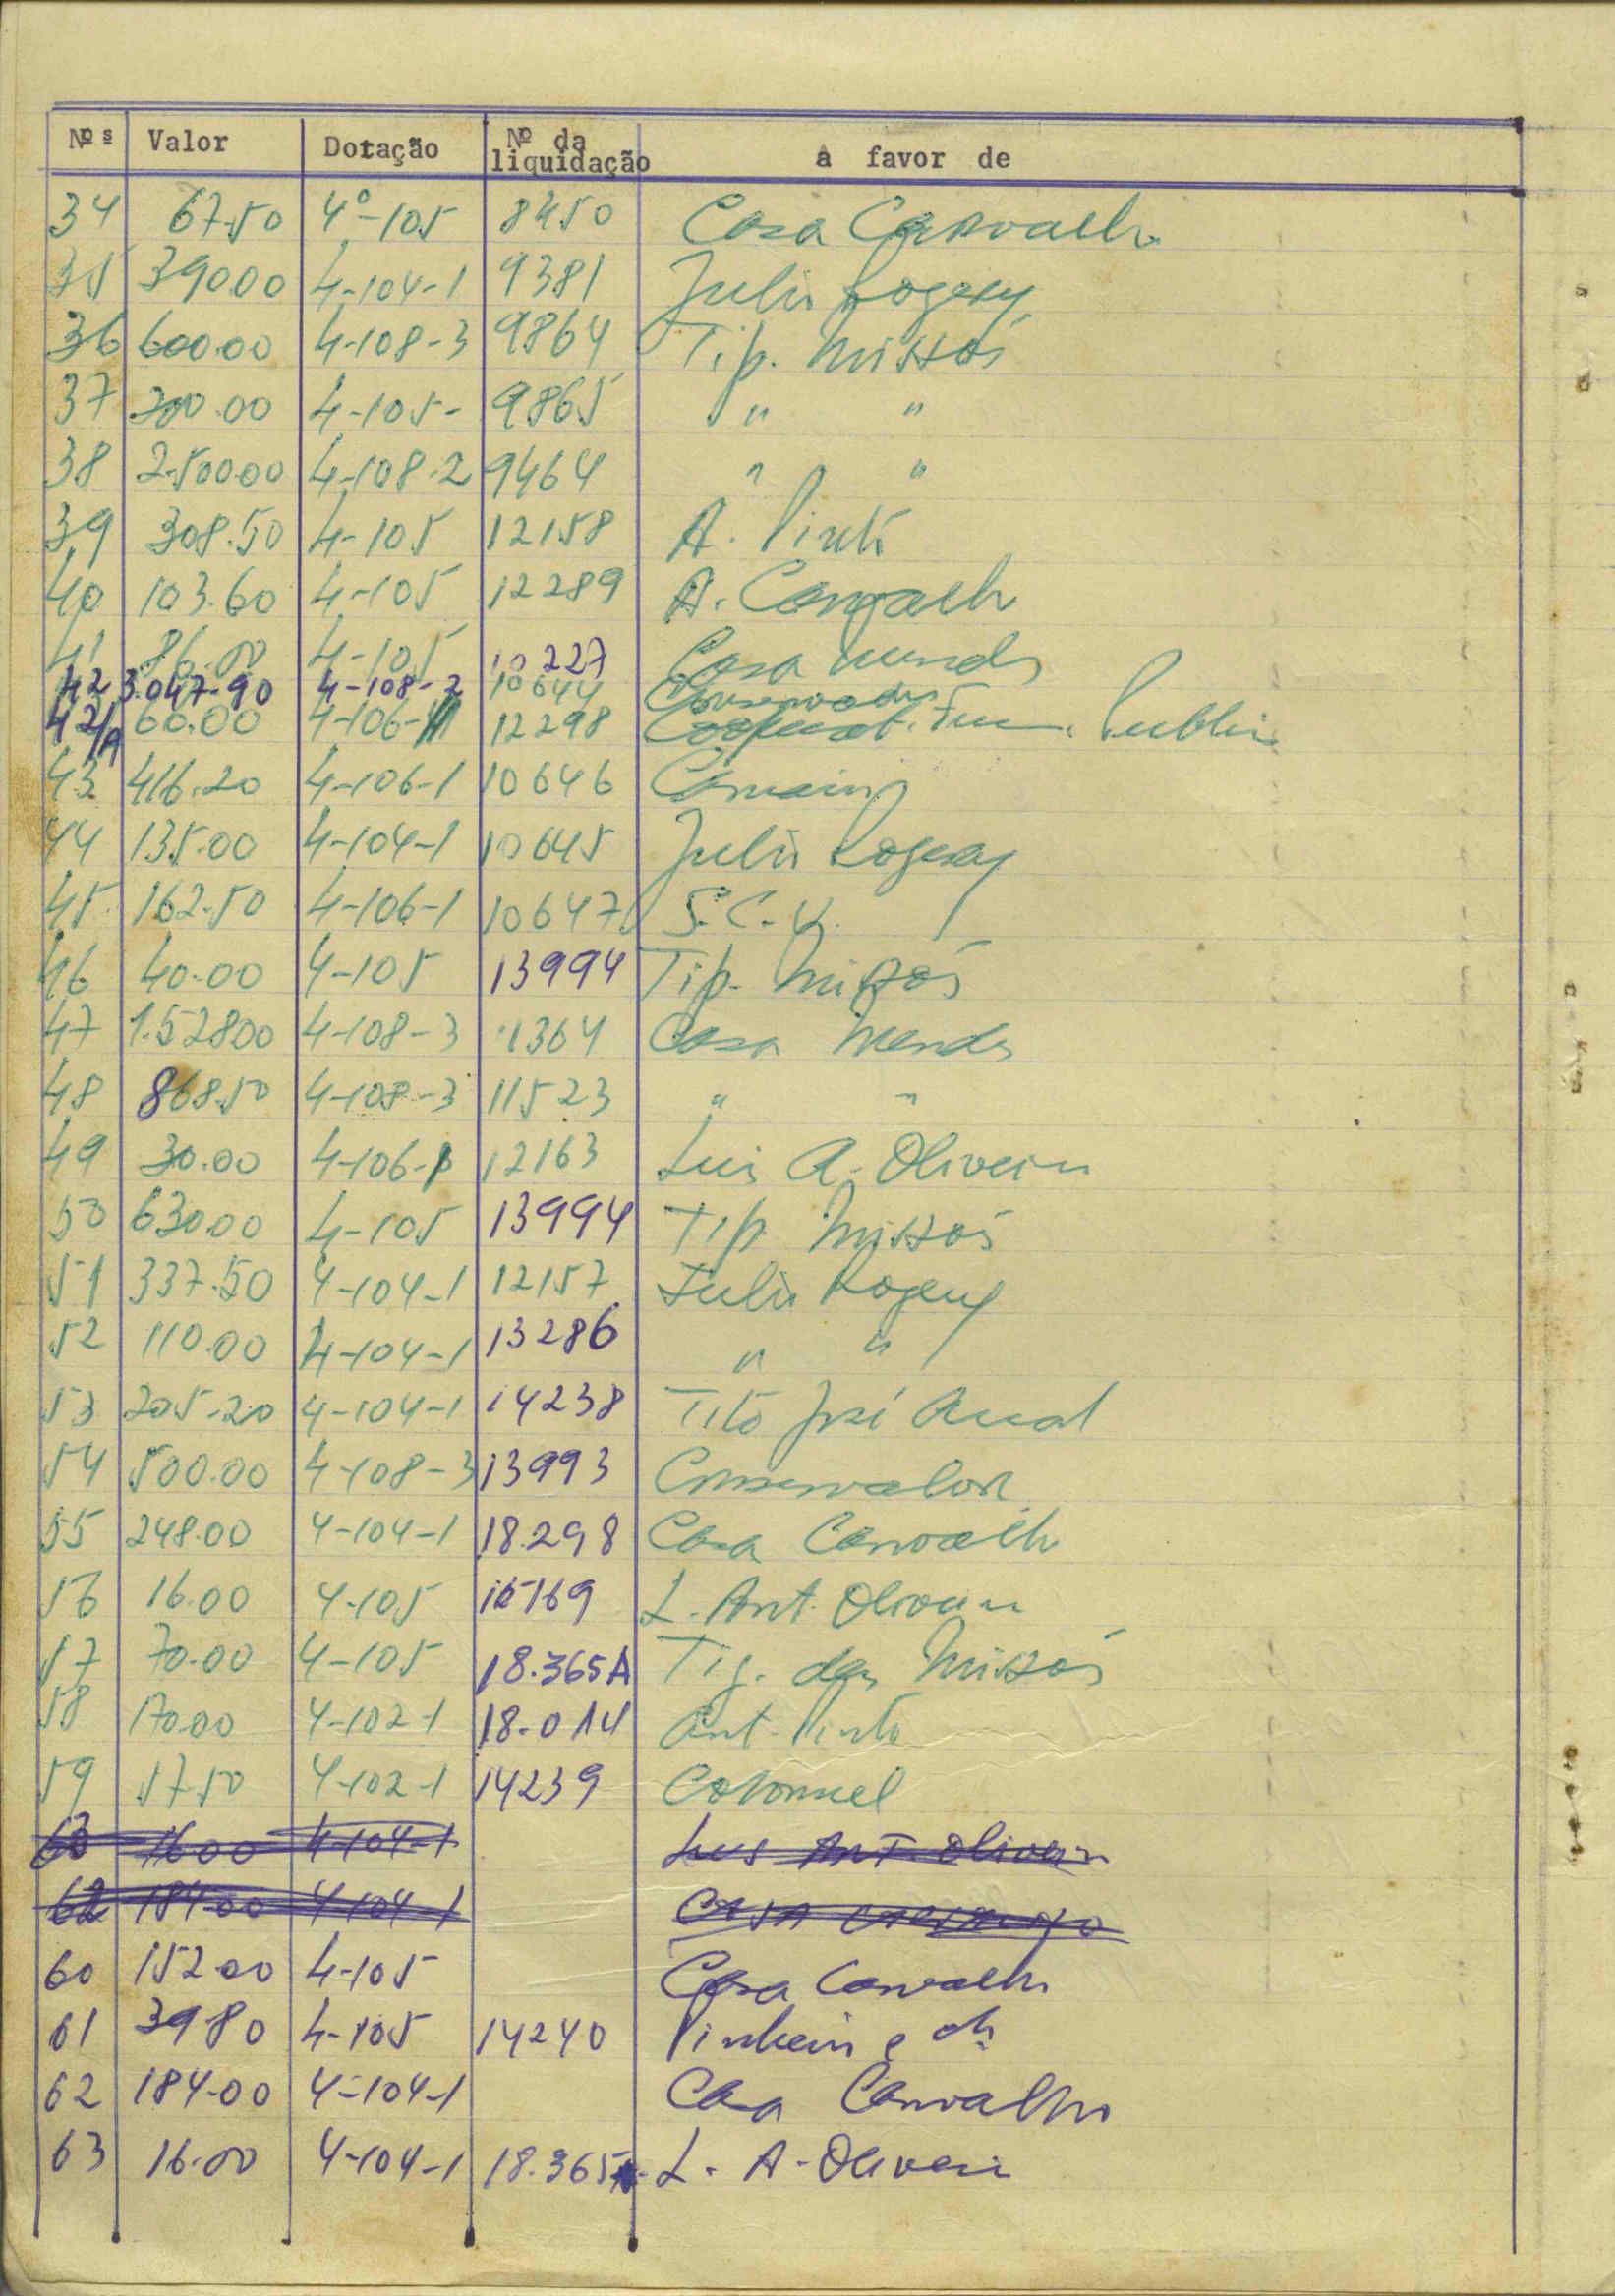 Nºs Valor Dotação Nº da liquidação a favor de
34 67.50 4º-105 8450 Casa Carvalho
35 390.00 4-104-1 9381 Julio
36 600.00 4-108-3 9864 Tip. Missões
37 300.00 4-105- 9865 " "
38 2.500.00 4-108-2 9464 " "
39 308.50 4-105 12158 A. Pinto
40 103.60 4-105 12289 A. Carvalho
41 86.00 4-105 10227 Casa Mendes
42 3.047.90 4-108-2 10644 Conservador
42/A 60.00 4-106- 12298 Cooperat. Fun. Public
43 416.20 4-106-1 10646
44 135.00 4-104-1 10645 Julio
45 162.50 4-106-1 10647 S.C.
46 40.00 4-105 13994 Tip. Missões
47 1.528.00 4-108-3 1364 Casa Mendes
48 868.50 4-108-3 11523 " "
49 30.00 4-106- 12163 Luis A. Oliveira
50 630.00 4-105 13994 Tip Missões
51 337.50 4-104-1 12157 Julio
52 110.00 4-104-1 13286 " "
53 205.20 4-104-1 14238 Tito José
54 500.00 4-108-3 13993 Conservador
55 248.00 4-104-1 18.298 Casa Carvalho
56 16.00 4-105 L. Ant. Oliveira
57 70.00 4-105 18.365A Tip. das Missões
58 170.00 4-102-1 18.014 Ant. Pinto
59 57.50 4-102-1 14239
63 16.00 4-104-1 Luis Ant. Oliveira
62 184.00 4-104-1 Casa
60 152.00 4-105 Casa Carvalho
61 39 80 4-105 14240 Pinheiro e
62 184.00 4-104-1 Casa Carvalho
63 16.00 4-104-1 18.365 L. A. Oliveira